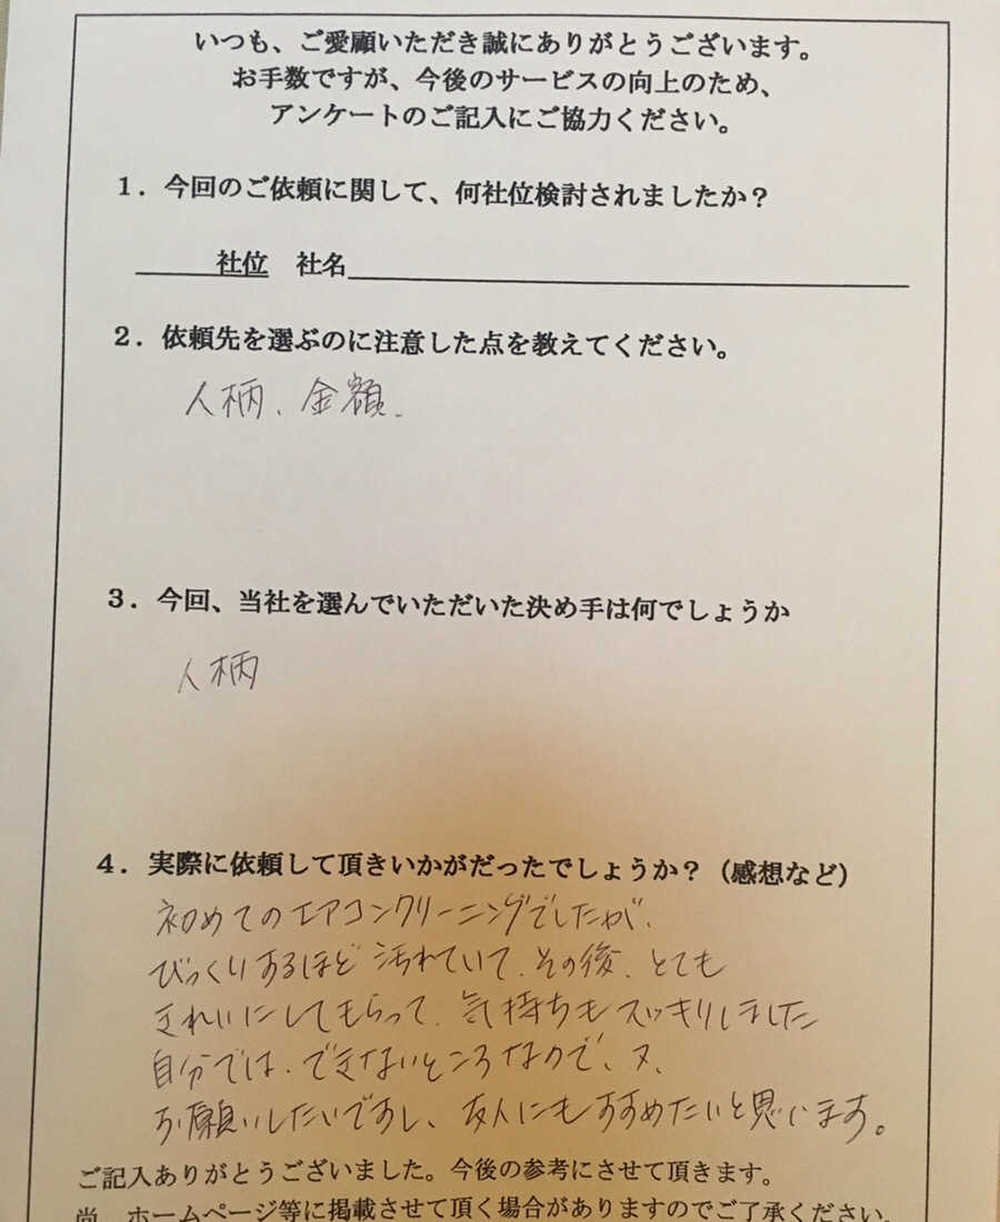 いつも、ご愛顧いただき誠にありがとうございます。
お手数ですが、今後のサービスの向上のため、
アンケートのご記入にご協力ください。
１．今回のご依頼に関して、何社位検討されましたか？
社位　社名
２．依頼先を選ぶのに注意した点を教えてください。
人柄、金額、
３．今回、当社を選んでいただいた決め手は何でしょうか
人柄
４．実際に依頼して頂きいかがだったでしょうか？（感想など）
初めてのエアコンクリーニングでしたが、
びっくりするほど汚れていて、その後、とても
きれいにしてもらって、気持ちもスッキリしました
自分では、できないところなので、又、
お願いしたいですし、友人にもすすめたいと思います。
ご記入ありがとうございました。今後の参考にさせて頂きます。
尚、ホームページ等に掲載させて頂く場合がありますのでご了承ください。